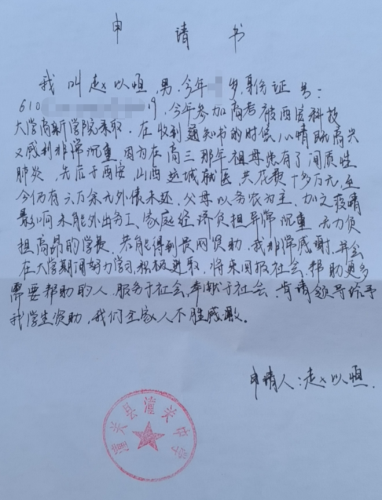 申 请 书
我叫赵以恒,男,今年 岁,身份证号:
610 9,今年参加高考被西安科技
大学高新学院录取。在收到通知书的时候,心情既高兴
又感到非常沉重,因为在高三那年祖母患有了间质性
肺炎,先后于西安,山西运城就医,共花费十多万元,至
今仍有六万余元外债未还,父母以务农为主,加之疫情
影响未能外出务工,家庭经济负担异常沉重,无力负
担高昂的学费。若能得到 资助,我非常感谢,并会
在大学期间努力学习,积极进取,将来回报社会,帮助更多
需要帮助的人,服务于社会,奉献于社会,肯请领导给予
我学生资助,我们全家人不胜感激。
申请人:赵以恒.